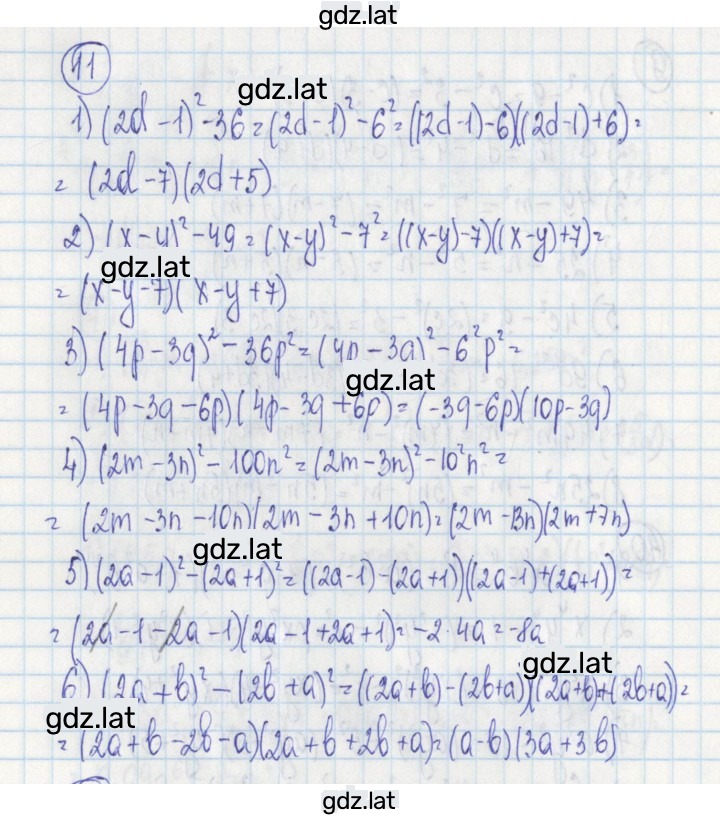 gdz.lat
11
gdz.lat
1) (2d - 1)² - 36 = (2d - 1)² - 6² = ((2d - 1) - 6)((2d - 1) + 6) =
= (2d - 7)(2d + 5)
2) (x - y)² - 49 = (x - y)² - 7² = ((x - y) - 7)((x - y) + 7) =
gdz.lat
= (x - y - 7)(x - y + 7)
3) (4p - 3q)² - 36p² = (4p - 3q)² - 6²p² =
gdz.lat
= (4p - 3q - 6p)(4p - 3q + 6p) = (-3q - 6p)(10p - 3q)
4) (2m - 3n)² - 100n² = (2m - 3n)² - 10²n² =
= (2m - 3n - 10n)(2m - 3n + 10n) = (2m - 13n)(2m + 7n)
gdz.lat
5) (2a - 1)² - (2a + 1)² = ((2a - 1) - (2a + 1))((2a - 1) + (2a + 1)) =
= (2a - 1 - 2a - 1)(2a - 1 + 2a + 1) = -2 · 4a = -8a
gdz.lat
6) (2a + b)² - (2b + a)² = ((2a + b) - (2b + a))((2a + b) + (2b + a)) =
gdz.lat
= (2a + b - 2b - a)(2a + b + 2b + a) = (a - b)(3a + 3b)
gdz.lat